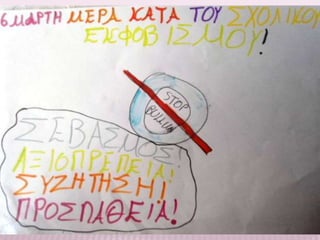 6 ΜΑΡΤΗ ΜΕΡΑ ΚΑΤΑ ΤΟΥ ΣΧΟΛΙΚΟΥ
ΕΚΦΟΒΙΣΜΟΥ!
STOP
BULLYING
ΣΕΒΑΣΜΟΣ!
ΑΞΙΟΠΡΕΠΕΙΑ!
ΣΥΖΗΤΗΣΗ!
ΠΡΟΣΠΑΘΕΙΑ!